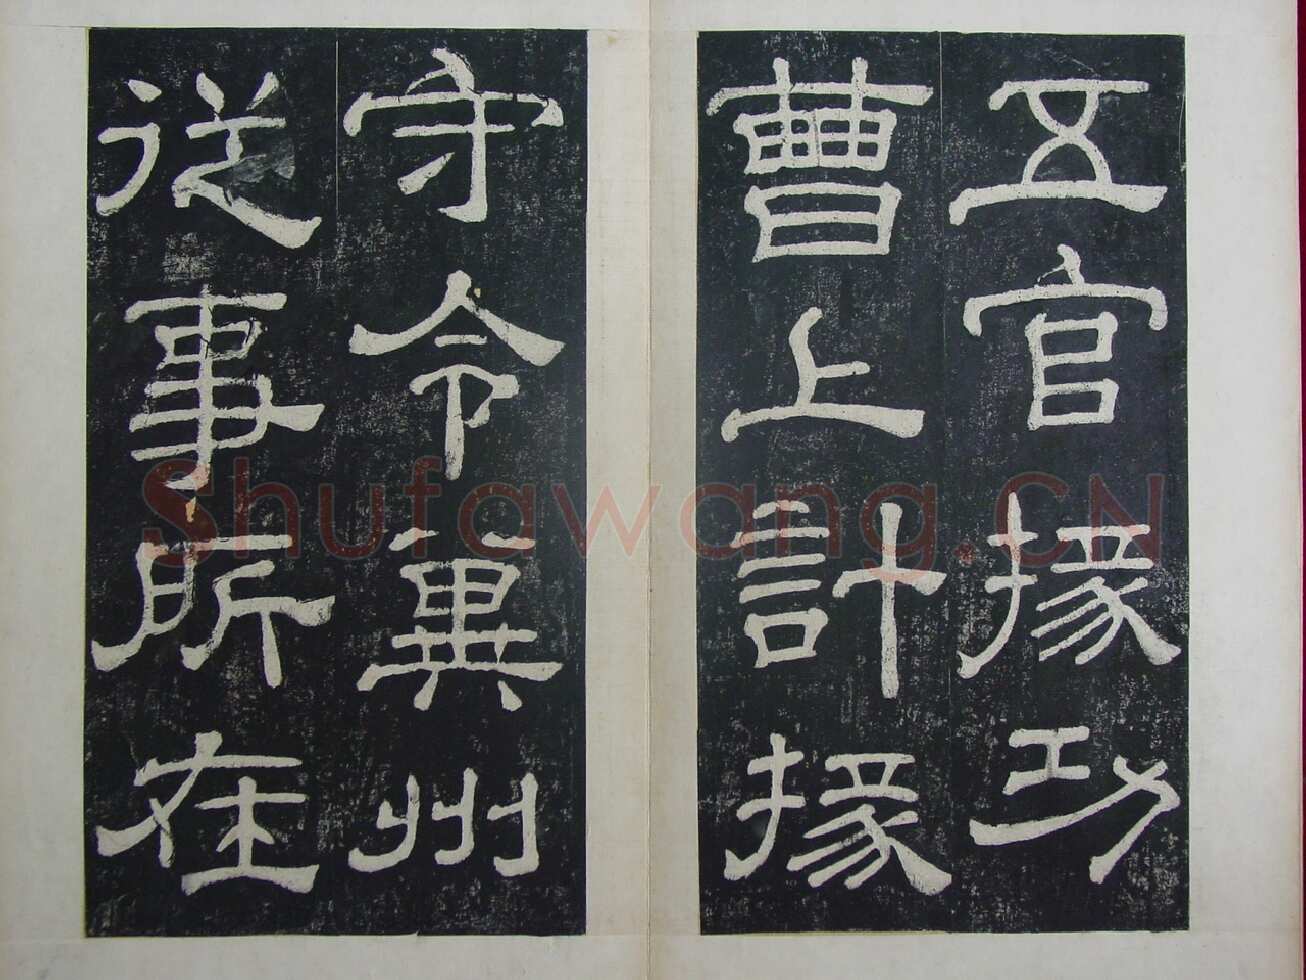 五官掾功
曹上計掾
守令冀州
從事所在
Shufawang.CN